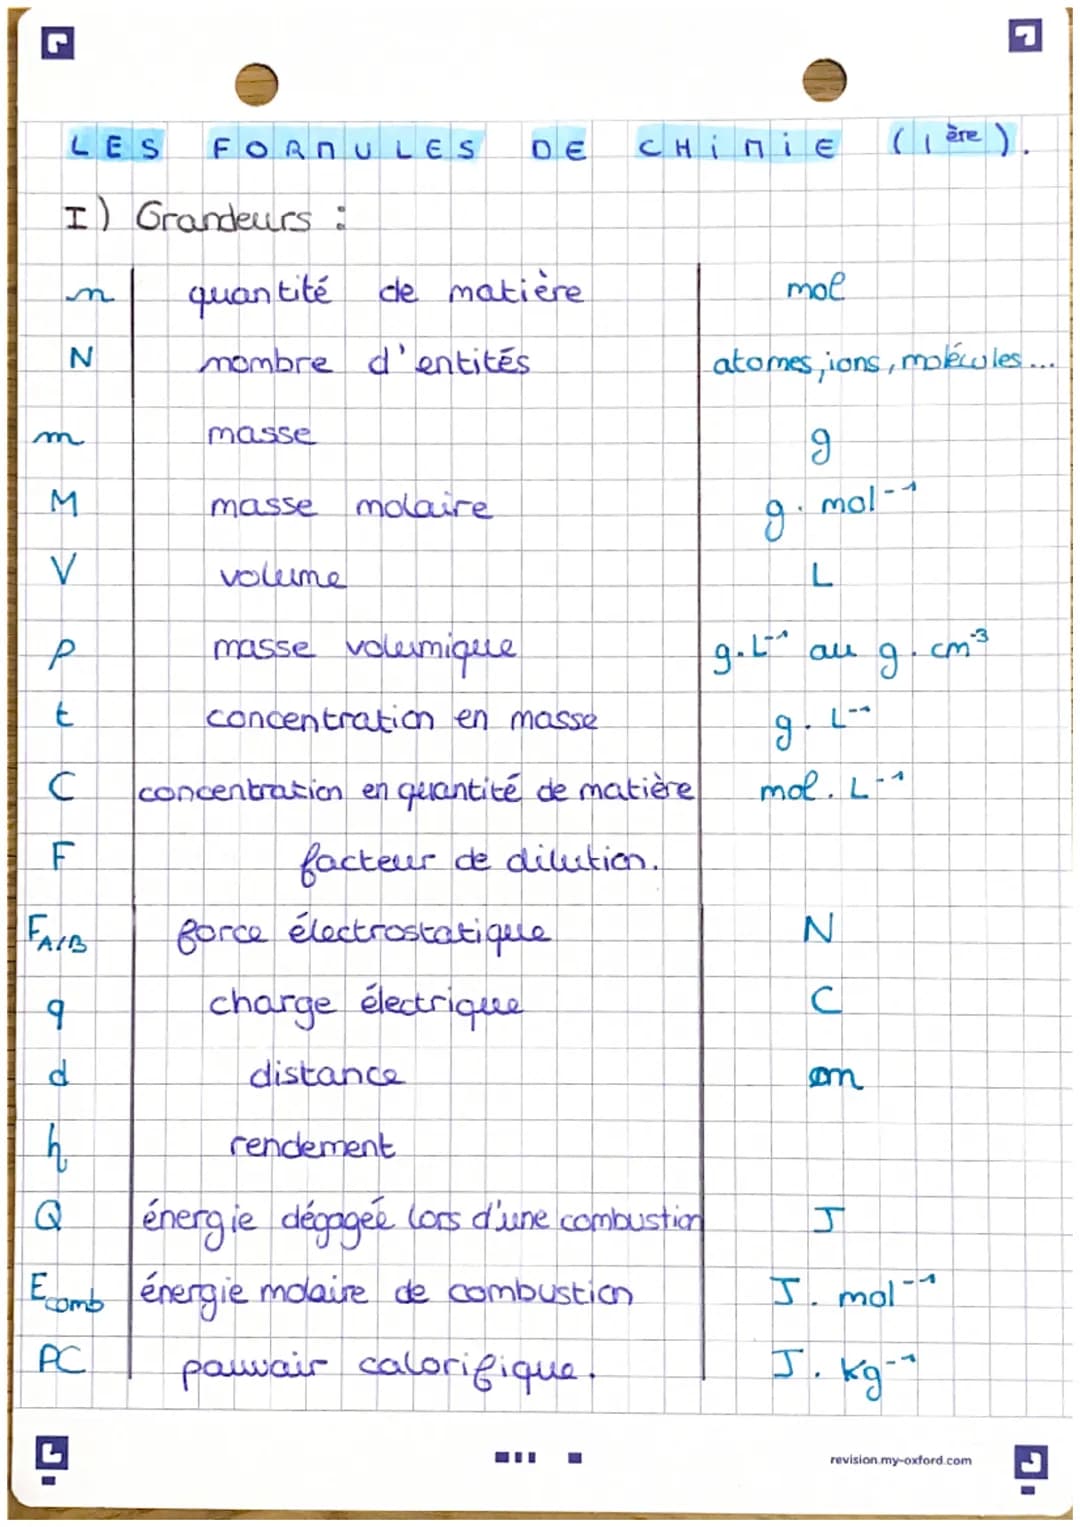 LES FORMULES DE CHIMIE (1ère).
I) Grandeurs :
n quantité de matière mol
N nombre d'entités atomes, ions, molécules...
m masse g
M masse molaire g. mol⁻¹
V volume L
ρ masse volumique g.L⁻¹ ou g. cm⁻³
t concentration en masse g. L⁻¹
C concentration en quantité de matière mol. L⁻¹
F facteur de dilution.
F_A/B force électrostatique N
q charge électrique C
d distance m
h rendement
Q énergie dégagée lors d'une combustion J
E_comb énergie molaire de combustion J. mol⁻¹
PC pouvoir calorifique. J. kg⁻¹
revision.my-oxford.com